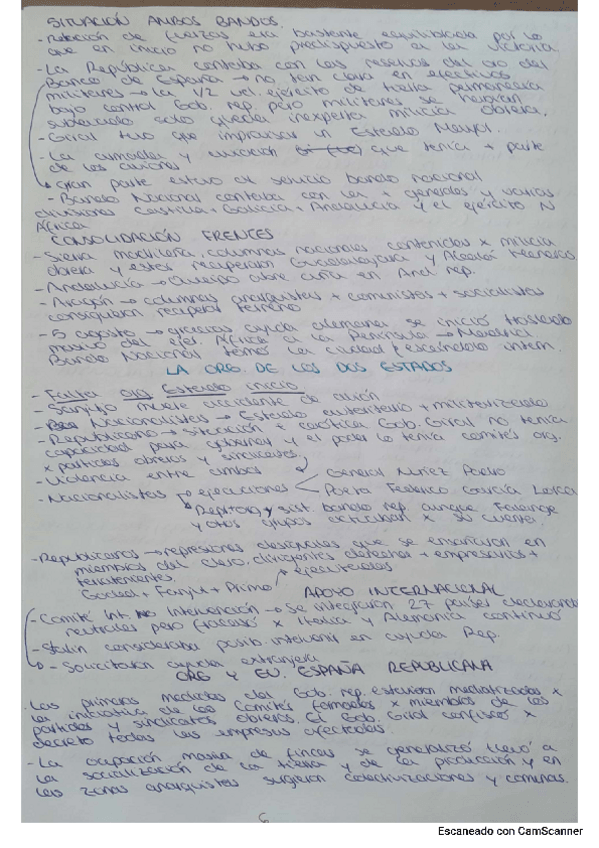 SITUACIÓN AMBOS BANDOS.
- relación de fuerzas era bastante equilibrada por lo
que en inicio no hubo predispuesto a la victoria.
- La República contaba con las reservas del oro del
Banco de España → no tan claro en efectivos
militares → la 1/2 del ejército de tierra permanecía
bajo control Gob. rep. pero militares se habían
sublevado solo queda inexperta milicia obrera.
- Giral tuvo que improvisar un Estado Mayor.
- La armada y aviación que tenía + parte
de los aviones.
gran parte estuvo al servicio bando nacional
- Bando Nacional contaba con los + generales y varias
divisiones Castilla + Galicia + Andalucía y el ejército N
África
CONSOLIDACIÓN FRENTES
- Sierra madrileña, columnas nacionales contenidas x milicia
obrera y estos recuperaron Guadalajara y Alcalá Henares
- Andalucía → Queipo abre cuña en And. rep.
- Aragón → columnas anarquistas + comunistas + socialistas
consiguieron recuperar terreno
- 5 agosto → gracias ayuda alemana se inició traslado
masivo del ejer. África a la Península →
Bando Nacional tomó la ciudad intern.
LA ORG. DE LOS DOS ESTADOS
- Falta org Estado inicio.
- Sanjurjo muere accidente de avión
- Nacionalistas → Estado autoritario + militarizado
- Republicano → situación + caótica Gob. Giral no tenía
capacidad para gobernar y el poder lo tenía comités org.
x partidos obreros y sindicatos
- Violencia entre ambos
- Nacionalistas → ejecuciones General Nuñez Prado
Poeta Federico García Lorca
y sist. bando rep. aunque Falange
y otros grupos actuaban x su cuenta.
- Republicanos → represiones desiguales que se ensañaron en
miembros del clero, dirigentes derechas + empresarios +
terratenientes.
ejecutados
Goded + Fanjul + Primo
APOYO INTERNACIONAL
- Comité Int. No Intervención → Se integraron 27 países declarando
neutrales pero fracasó x Italia y Alemania continuó
- Stalin consideraba posib. intervenir en ayuda Rep.
- Solicitaron ayuda extranjera
ORG Y EV. ESPAÑA REPUBLICANA
- Las primeras medidas del Gob. rep. estuvieron mediatizadas x
la iniciativa de los Comités formados x miembros de los
partidos y sindicatos obreros. El Gob. Giral confiscó x
decreto todas las empresas afectadas.
- La ocupación masiva de fincas se generalizó llevó a
la socialización de la tierra y de la producción y en
las zonas anarquistas surgieron colectivizaciones y comunas.
6
Escaneado con CamScanner